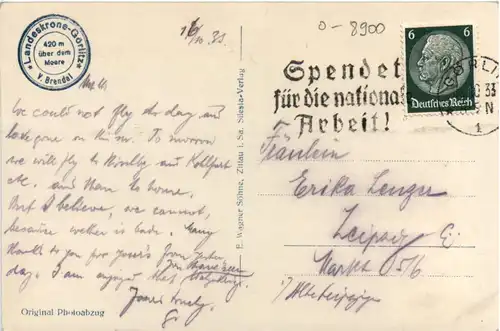 *Landeskrone-Görlitz*
420 m
über dem
Meere
V. Brendel
16/10 33
0-8900
6 6
Deutsches Reich
GÖRLI
33
N
1
Spendet
für die nationa
Arbeit!
We could not fly the day and
have gone on. To morrow
we will fly to and
etc. and then to home.
But I believe, we cannot,
because wether is bad. Many
thanks to you for from
day. I am that
Yours truly.
Fräulein
Erika
Leipzig C.
Markt 5/6
E. Wagner Söhne, Zittau i. Sa. Silesia-Verlag
Original Photoabzug